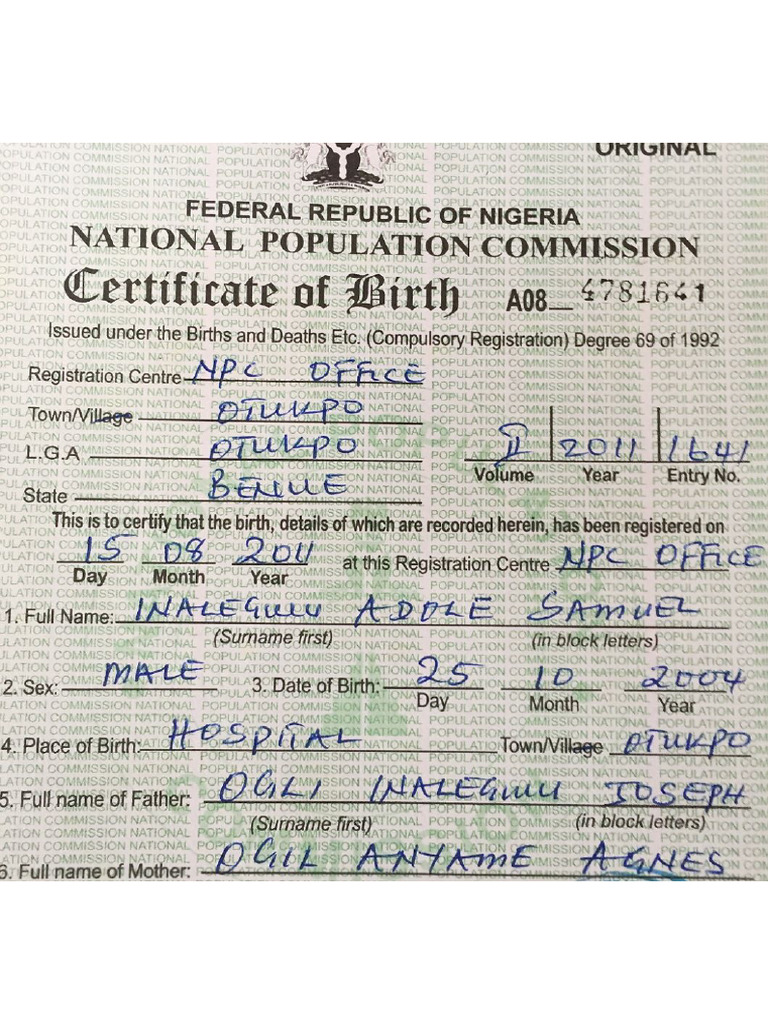 ORIGINAL
FEDERAL REPUBLIC OF NIGERIA
NATIONAL POPULATION COMMISSION
Certificate of Birth A08 4781641
Issued under the Births and Deaths Etc. (Compulsory Registration) Degree 69 of 1992
Registration Centre NPC OFFICE
Town/Village OTUKPO
L.G.A OTUKPO
II 2011 1641
Volume Year Entry No.
State BENUE
This is to certify that the birth, details of which are recorded herein, has been registered on
15 08 2011 at this Registration Centre NPC OFFICE
Day Month Year
1. Full Name: INALEGWU ADOLE SAMUEL
(Surname first) (in block letters)
2. Sex: MALE 3. Date of Birth: 25 10 2004
Day Month Year
4. Place of Birth: HOSPITAL Town/Village OTUKPO
5. Full name of Father: OGLI INALEGWU JOSEPH
(Surname first) (in block letters)
6. Full name of Mother: OGIL ANYAME AGNES